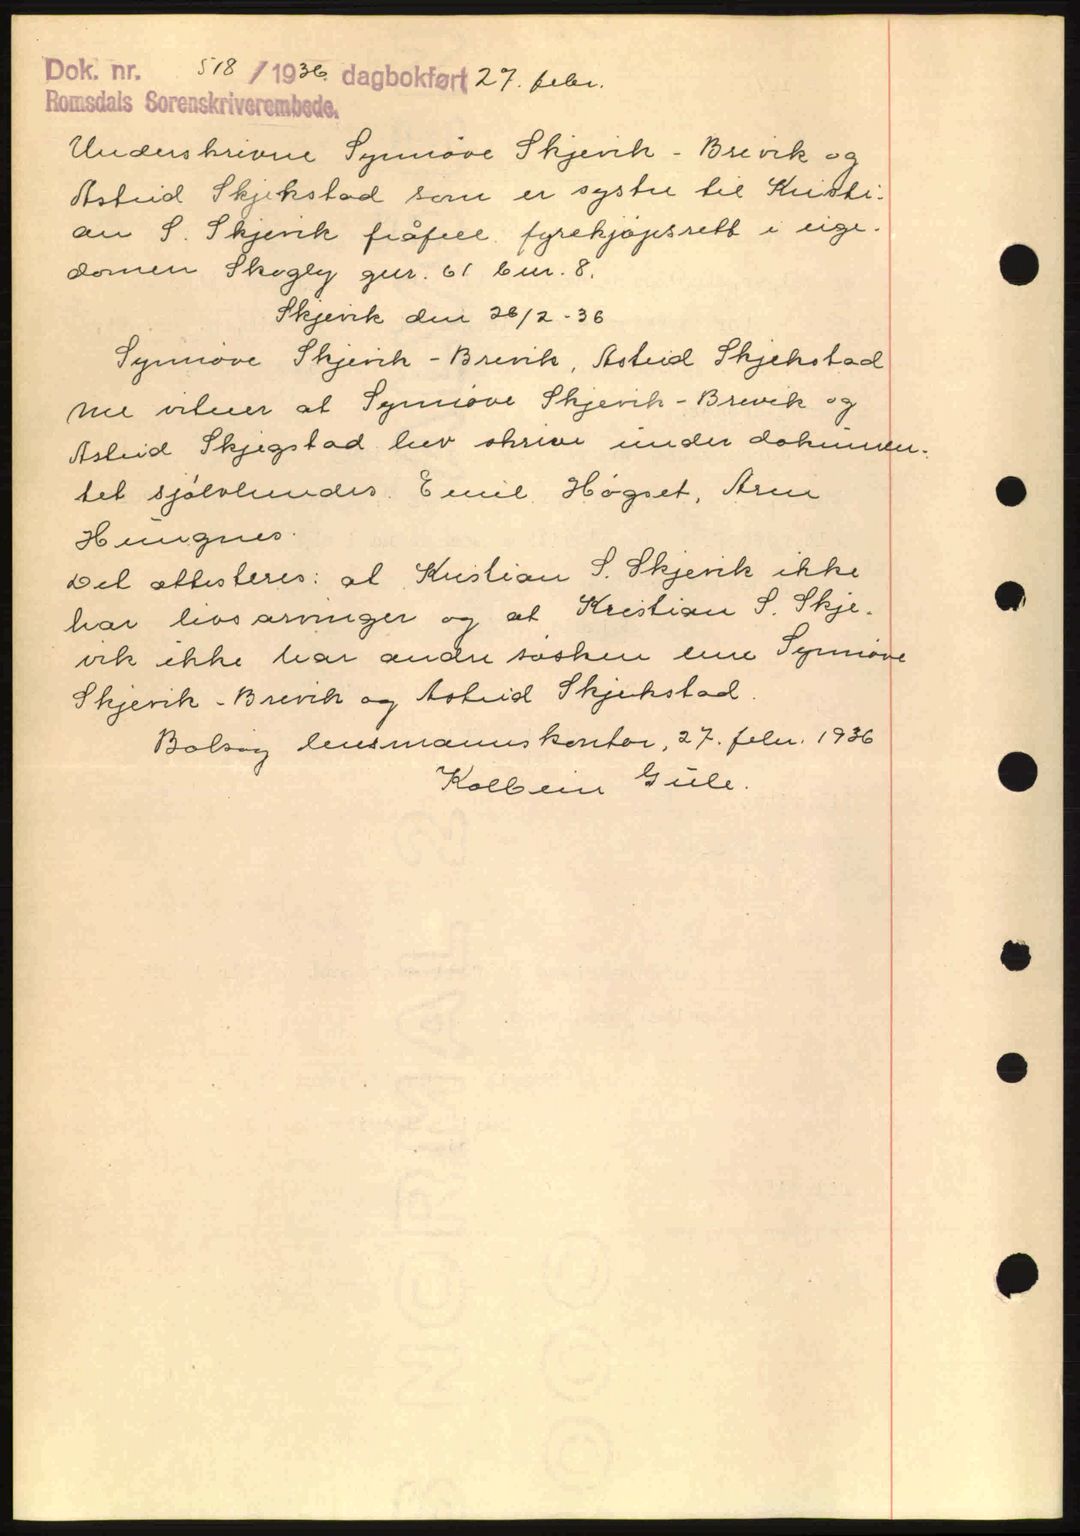 Dok. nr. 518 / 1936 dagbokført 27. febr.
Romsdals Sorenskriverembede.
Underskrivne Synnøve Skjevik - Brevik og
Astrid Skjekstad som er systre til Kristi-
an S. Skjevik fråfell fyrekjøpsrett i eige-
domen Skogly gnr. 61 bnr. 8.
Skjevik den 26/2 - 36
Synnøve Skjevik - Brevik, Astrid Skjekstad
Me vitner at Synnøve Skjevik - Brevik og
Astrid Skjegstad hev skrive under dokumen-
tet sjølvhendes. Emil Høgset, Arne
Hungnes.
Det attesteres: at Kristian S. Skjevik ikke
har livsarvinger og at Kristian S. Skje-
vik ikke har andre søsken enn Synnøve
Skjevik - Brevik og Astrid Skjekstad.
Bolsøy lensmannskontor, 27. febr. 1936
Kolbein Gule.